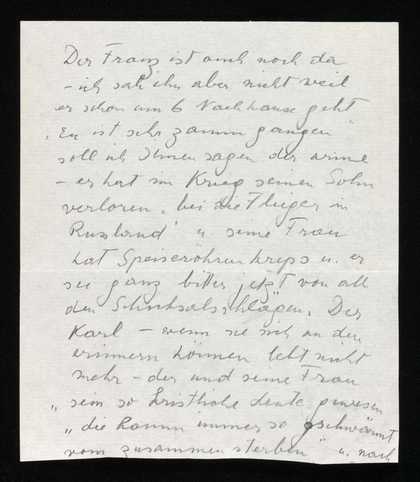 Der Franz ist auch noch da
– ich sah ihn aber nicht weil
er schon um 6 Nachhause geht
„Er ist sehr zamm gangen"
soll ich Ihnen sagen der arme
– er hat im Krieg seinen Sohn
verloren „bei die Flieger in
Russland" u seine Frau
hat Speiseröhrenkrebs u. er
sei ganz bitter jetzt von all
den Schicksalsschlägen. Der
Karl – wenn sie sich an den
erinnern können lebt nicht
mehr – der und seine Frau
„sein so kristliche Leute gewesen
„die haben immer so gschwärmt
vom zusammen sterben" u. nach